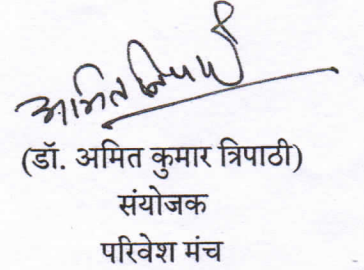 अमित त्रिपाठी
(डॉ. अमित कुमार त्रिपाठी)
संयोजक
परिवेश मंच